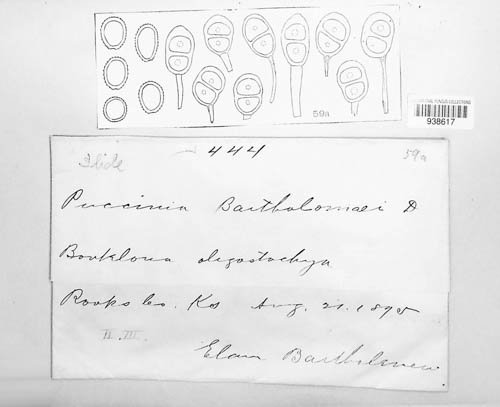 59a
NATIONAL FUNGUS COLLECTIONS
938617
Slide
444
59a
Puccinia Bartholomaei D
Bouteloua oligostachya
Rooks Co. Ks Aug. 21. 1895
II. III.
Elam Bartholomew